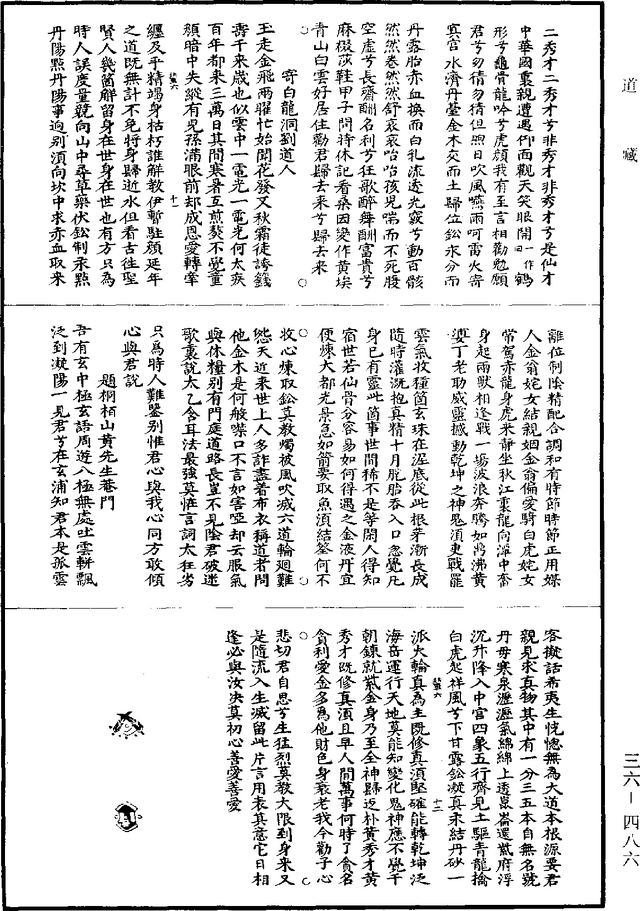 二秀才二秀才兮非秀才非秀才兮是仙才
中華國裏親遭遇仰面觀天笑眼開一作鶴
形兮龜骨龍吟兮虎顏我有至言相勸勉願
君兮勿猜勿猜但照日吹風嚥雨呵雷火寄
冥宮水濟丹臺金木交而土歸位鉛汞分而
丹露胎赤血換而白乳流透光竅兮動百骸
然然卷然然舒哀哀咍咍孩兒喘而不死腹
空虛兮長齋酬名利兮狂歌醉舞酬富貴兮
麻裰莎鞋甲子問時休記看桑田變作黃埃
青山白雲好居住勸君歸去來兮歸去來
寄白龍洞劉道人
玉走金飛兩曜忙始聞花發又秋霜徒誇籛
壽千來歲也似雲中一電光一電光何太疾
百年都來三萬日其間寒暑互煎熬不覺童
顏暗中失縱有兒孫滿眼前却成恩愛轉牽
纏及乎精竭身枯朽誰解教伊暫駐顏延年
之道既無計不免將身歸逝水但看古往聖
賢人幾箇解留身在世身在世也有方只為
時人誤度量競向山中尋草藥伏鉛制汞點
丹陽點丹陽事迥別須向坎中求赤血取來
離位制陰精配合調和有時節時節正用媒
人金翁姹女結親姻金翁偏愛騎白虎姹女
常駕赤龍身虎來靜坐秋江裏龍向潭中奮
身起兩獸相逢戰一場波浪奔騰如鼎沸黃
婆丁老助威靈撼動乾坤走神鬼須臾戰罷
雲氣收種箇玄珠在泥底從此根芽漸長成
隨時灌溉抱真精十月脫胎吞入口忽覺凡
身已有靈此箇事世間稀不是等閑人得知
宿世若仙骨分容易如何得遇之金液丹宜
便煉大都光景急如箭要取魚須結罾何不
收心煉取鉛莫教燭被風吹滅六道輪迴難
怨天近來世上人多詐盡著布衣稱道者問
他金木是何般噤口不言如害啞却云服氣
與休糧別有門庭道路長豈不見陰君破迷
歌裏說太乙含耳法最強莫恠言詞太狂劣
只為時人難鑒別惟君心與我心同方敢傾
心與君說
題桐栢山黃先生菴門
吾有玄中極玄語周遊八極無處吐雲軿飄
泛到凝陽一見君兮在玄浦知君本是孤雲
客擬話希夷生恍惚無為大道本根源要君
親見求真物其中有一分三五本自無名號
丹母寒泉瀝瀝氣綿綿上透崑崙還紫府浮
沉升降入中宮四象五行齊見土驅青龍擒
白虎起祥風兮下甘露鉛凝真汞結丹砂一
派火輪真為主既修真須堅確能轉乾坤泛
海岳運行天地莫能知變化鬼神應不覺千
朝鍊就紫金身乃至全神歸返朴黃秀才黃
秀才既修真須且早人間萬事何時了貪名
貪利愛金多為他財色身衰老我今勸子心
悲切君自思兮生猛烈莫教大限到身來又
是隨流入生滅留此片言用表真意它日相
逢必與汝決莫初心善愛善愛
道藏
三六—四八六